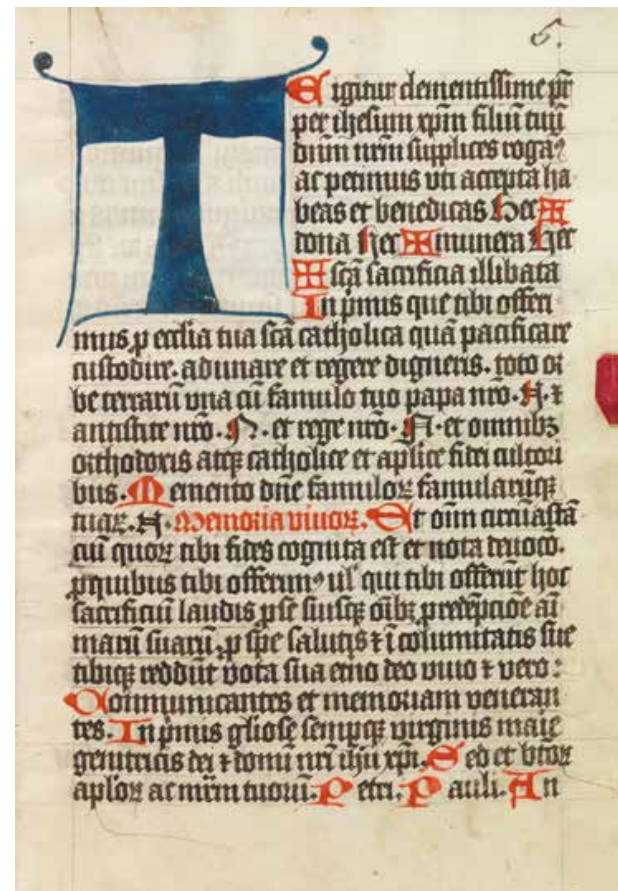 6.
T E igitur clementissime pr̄
per ihesum xp̄m filiū tuū
dūm nr̄m supplices rogaꝰ
ac petimus vti accepta ha
beas et benedicas hec ✠
dona hec ✠ munera hec
✠ scā sacrificia illibata
In p̄mis que tibi offeri
mus ꝓ ecclia tua scā catholica quā pacificare
custodire. adunare et regere digneris. toto or
be terrarū vna cū famulo tuo papa nr̄o. N. ⁊
antistite nr̄o. N. et rege nr̄o. N. et omnibꝫ
orthodoxis atqꝫ catholice et aplice fidei cultori
bus. Memento dn̄e famuloꝝ famularūqꝫ
tuaꝝ. N. Memoria viuoꝝ. Et oīm circūastā
ciū quoꝝ tibi fides cognita est et nota deuoco.
ꝓ quibus tibi offerimꝰ ul' qui tibi offerūt hoc
sacrificiū laudis ꝓ se suisqꝫ oībꝫ ꝓ redēpcōe aī
marū suarū, ꝓ spe salutis ⁊ īcolumitatis sue
tibiqꝫ reddūt vota sua et̄no deo viuo ⁊ vero:
Communicantes et memoriam veneran
tes. In p̄mis gliose sempqꝫ virginis marie
genitricis dei ⁊ domī nr̄i ihū xp̄i. Sed et btoꝝ
aploꝝ ac mr̄m tuorū. Petri. Pauli. An